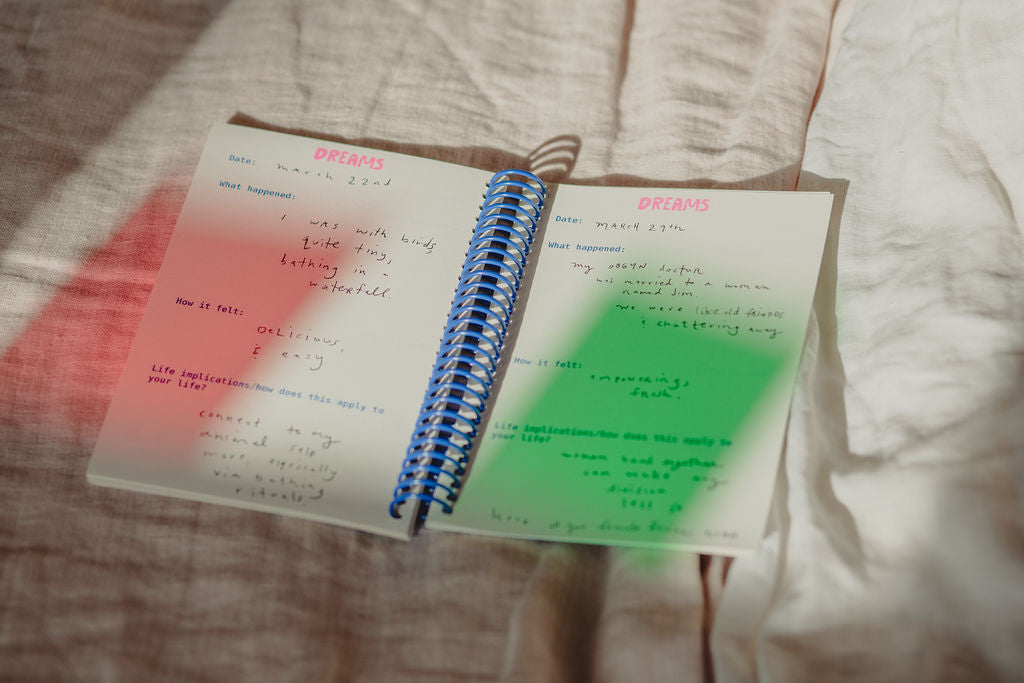 DREAMS
Date: March 22nd
What happened:
I was with birds
quite tiny,
bathing in a
waterfall.
How it felt:
Delicious,
& easy
Life implications/how does this apply to
your life?
connect to my
animal self
more, especially
via bathing
rituals.
DREAMS
Date: MARCH 29th
What happened:
my OBGYN doctor
was married to a woman
named Jim.
we were like old friends
& chattering away
How it felt:
empowering,
fresh.
Life implications/how does this apply to
your life?
women band together
can make any
decision